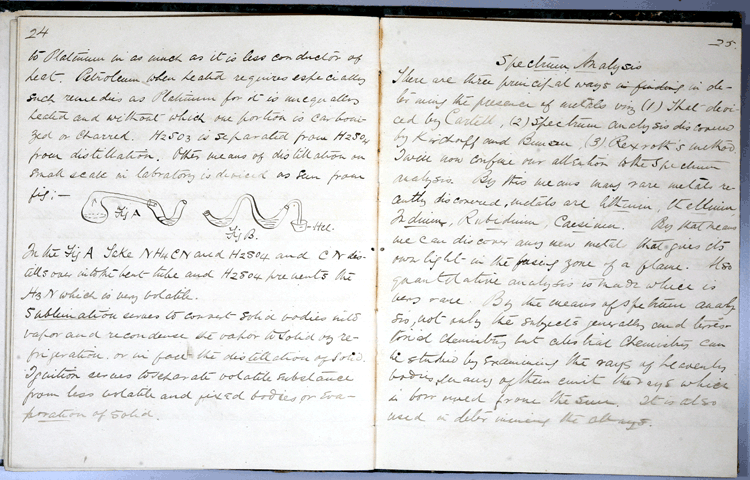 24
to Platinum in as much as it is less conductor of
heat. Petroleum when heated requires especially
such remedies as Platinum for it is unequally
heated and without which one portion is carboni-
zed or charred. H2SO3 is separated from H2SO4
from distillation. Other means of distillation on
small scale in labratory is deviced as seen from
fig:-
Fig A
Fig B.
In the Fig A Take NH4CN and H2SO4 and CN dis-
tills over into the bent tube and H2SO4 prevents the
H3N which is very volatile.
Sublimation serves to convert solid bodies into
vapor and recondense the vapor to solid by re-
frigeration or in fact the distillation of solid.
Ignition serves to separate volatile substance
from less volatile and fixed bodies or eva-
poration of solid.
25.
Spectrum Analysis
There are three principal ways in finding in de-
termining the presence of metals viz (1) That devi-
ced by (2) Spectrum analysis discovered
by Kirchoff and Bunsen, (3) method.
I will now confine our attention to the Spectrum
analysis. By this means many rare metals re-
cently discovered, metals are
Indium, Rubidium, Caesium. By that means
we can discover any new metal that gives its
own light in the fusing zone of a flame. Also
quantitative analysis is made which is
very rare. By the means of spectrum analy-
sis, not only the subjects generally and terres-
torial chemistry but celestial Chemistry can
be studied by examining the rays of heavenly
bodies, for many of them emit the rays which
is borrowed frome the Sun. It is also
used in determining the alloys.